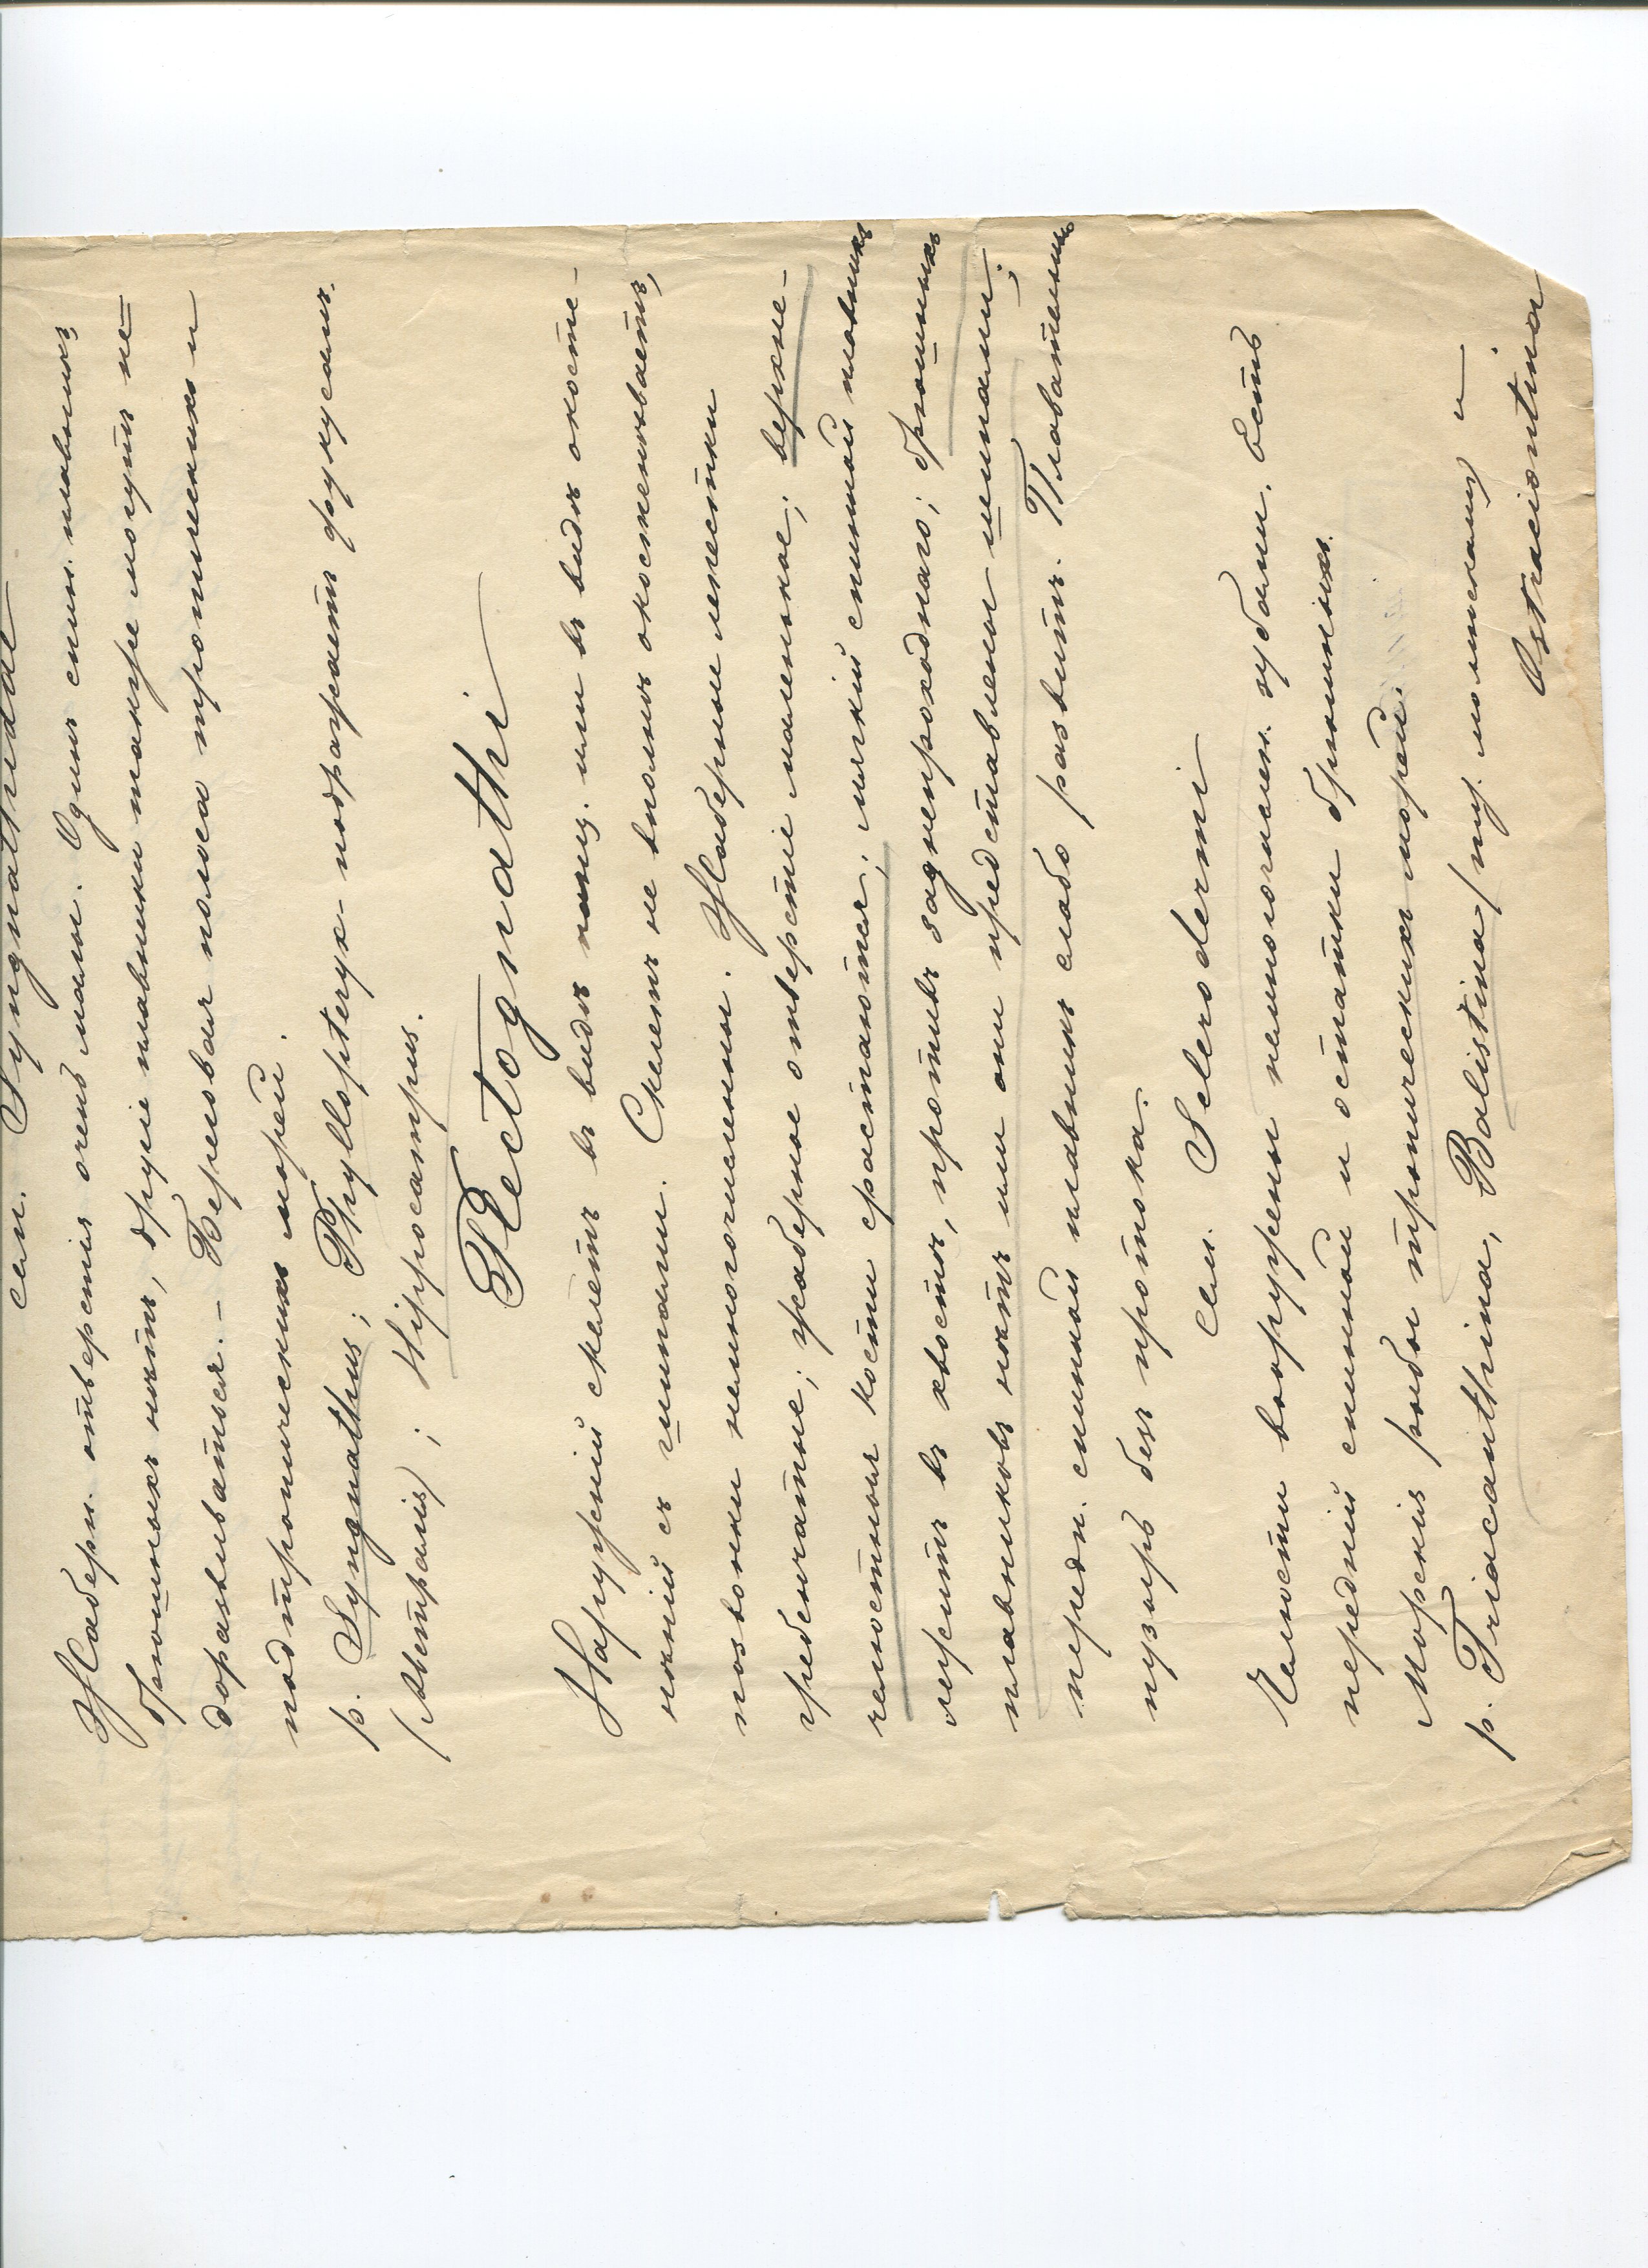 сем. Syngnathidae
Жаберн. отверстія очень малы. Одинъ спин. плавникъ,
брюшныхъ нѣтъ, другіе плавники также могутъ не
доразвиваться. – Береговая полоса тропическихъ и
подтропическихъ морей.
р. Syngnathus; Phyllopteryx - подражаетъ фукусамъ.
(Австралія); Hippocampus.
Plectognathi
Наружный скелетъ въ видѣ панц. или въ видѣ окосте-
нѣній съ шипами. Скелетъ не вполнѣ окостенѣваетъ,
позвонки немногочисленны. Жаберные лепестки
гребенчатые; жаберное отверстіе маленькое; верхне-
челюстныя кости срастаются; мягкій спинной плавникъ
лежитъ въ хвостѣ, противъ заднепроходнаго; брюшныхъ
плавниковъ нѣтъ или они представлены шипами;
передн. спинной плавникъ слабо развитъ. Плавательный
пузырь безъ протока.
Сем. Sclerodermi
Челюсти вооружены немногочислен. зубами. Есть
передній спинной и остатки брюшныхъ.
Морскія рыбы тропическихъ морей.
р. Triacanthina, Balistina и
Ostraciontina